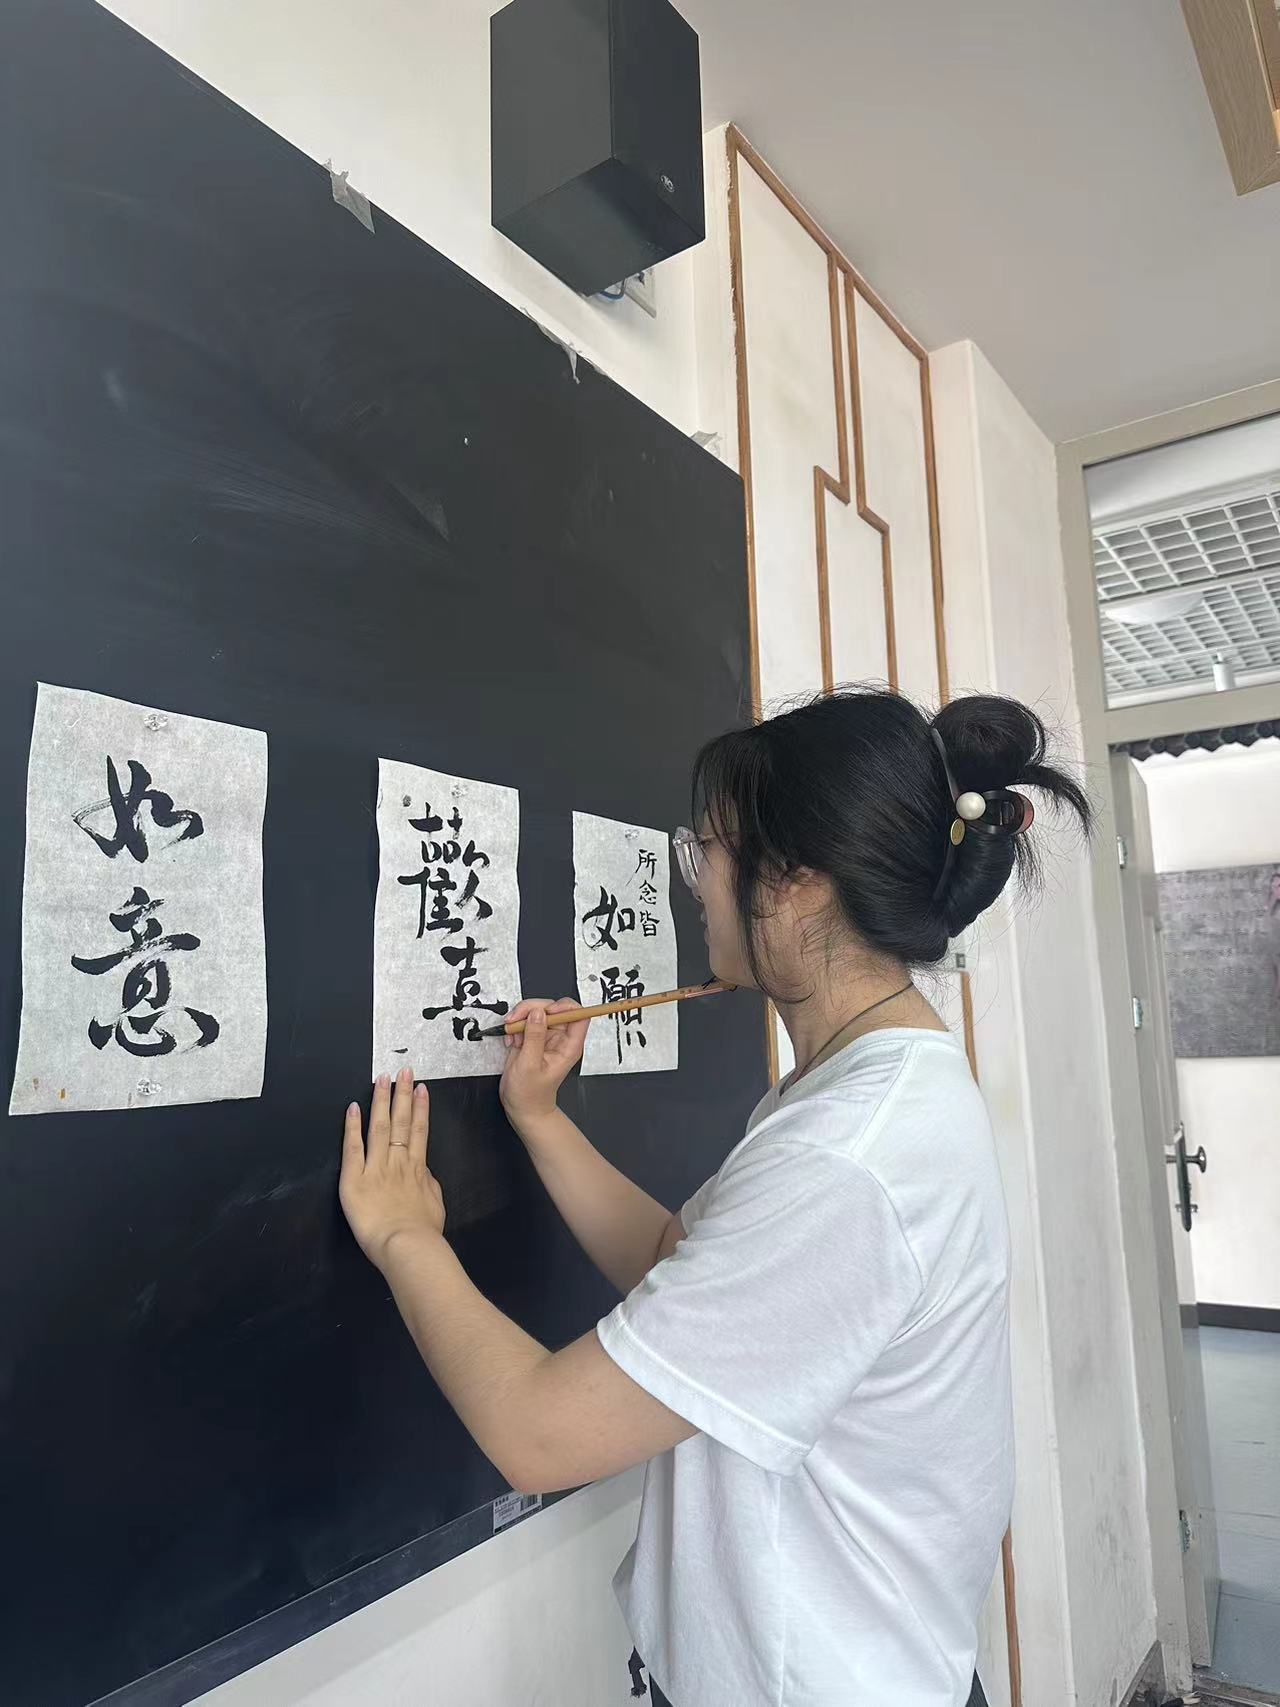 如意
歡喜
所念皆
如願